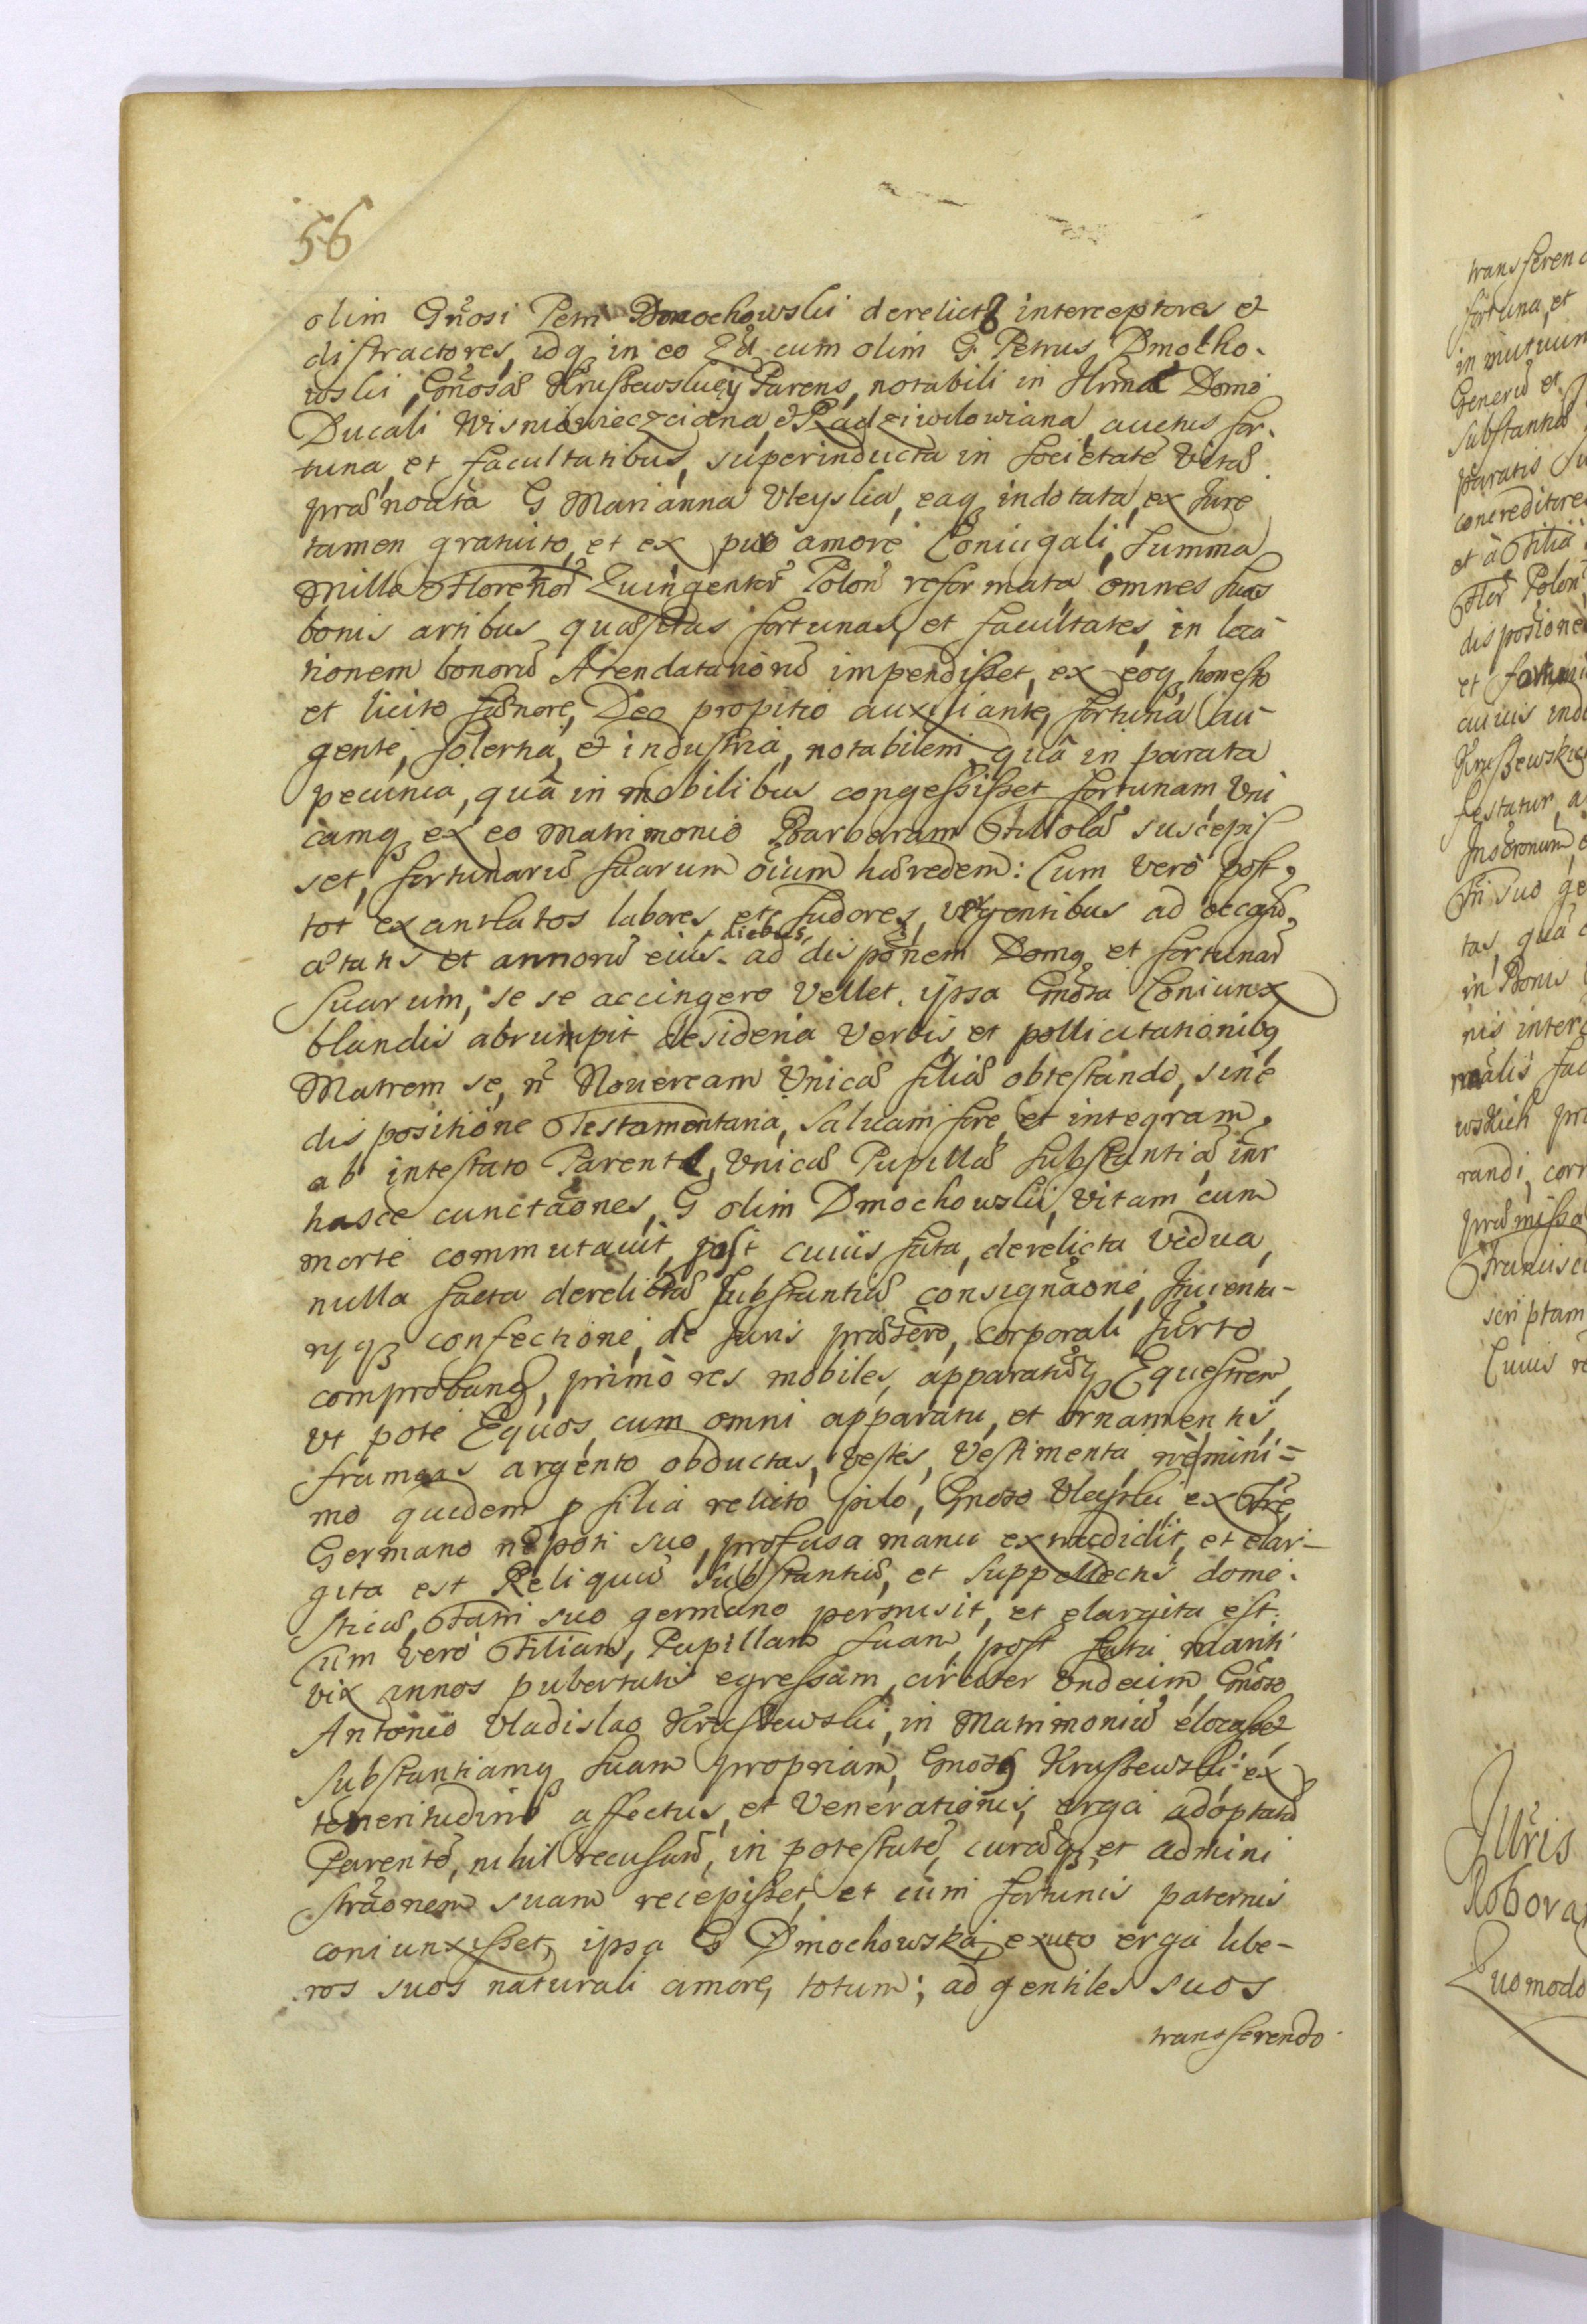 56
olim Gñosi Petri Dmochowski derelict interceptores et
distractores, idq in eo Qd cum olim G Petrus Dmocho-
wski, Gñosæ Kruszewskiey Parens, notabili in Domo
Ducali Wisniowiecziana, et Radziwilowiana, auctus for-
tuna, et facultatibus, superinducta in societate vitæ
prænoâta G Marianna Uleyska, eaq indotata, ex Jure
tamen gratuito, et ex puro amore Coniugali, Summa
Mille Florenor Quingentor Polon reformata, omnes suas
bonis artibus quæsitas fortunas, et facultates, in loca-
tionem bonorũ Arendatarionũ impendisset, ex eoq honesto
et licito fænore, Deo propitio auxiliante, fortuna au-
gente, solertia, et industria, notabilem, quâ in parata
pecunia, quâ in mobilibus congessisset fortunam, Uni
camq ex eo Matrimonio Barbaram Filiolã suscepis
set, fortunarũ suarum oium hæredem: Cum verò post
tot exantlatos labores, et sudores, urgentibus ad occasũ
ætatis et annorũ eius diebus, ad dispônem Domq et fortunarũ
suarum, se se accingere vellet, ipsa Gnosa Coniunx
blandis abrumpit desideria verbis, et pollicitationibq
Matrem se, ñ Nouercam Unicæ filiæ obtestando, sine
dispositione Testamentaria, saluam fore, et integram,
ab intestato Parente, Unicæ Pupillæ substantiã, inr
hasce cunctâones, G olim Dmochowski, vitam cum
morte commutauit, post cuius fata, derelicta vidua,
nulla facta derelictæ substantiæ consignâone, Inuenta-
rijq confectione, de Juris præscro, corporali Jurto
comprobang, primò res mobiles, apparatũq Equestrem,
ut pote Equos cum omni apparatu, et ornamentis,
frameas argento obductas, vestes, Vestimenta, ne mini-
mo quidem p filia relicto pilo, Gnoso Uleyski ex Fre
Germano nepoti suo, profusa manu extradidit, et elar-
gita est Reliquũ substantiæ, et suppellectis dome-
sticæ, Fatri suo germano permisit, et elargita est.
Cum verò Filiam, Pupillam suam, post fata mariti
vix annos pubertatis egressam, circiter undecim Gnoso
Antonio Vladislao Kruszewski, in Matrimoniũ elocasset,
substantiamq suam propriam, Gnosq Kruszewski ex
teneritudine affectus, et Venerationis, erga adoptatũ
Parentẽ, nihil recusanẽ, in potestatẽ, curãq, et admini
strâonem suam recepisset, et cum fortunis paternis
coniunxisset, ipsa G Dmochowska, exuto erga libe-
ros suos naturali amore, totum, ad gentiles suos
transferendo
transferend
fortuna, et
in mutuum
Generũ et
substantiã
paratis su
concreditore
et à Filia
Flor Polon
dispositione
et fortuni
cuius indu
Kruszewskie
festatur, a
Fri suo ge
tas, quâ
in Bonis
nis inter
malis fac
wskich pr
randi, corr
præmissa
Francisci
scriptam
Cuius r
Juris
Robora
Quomodo